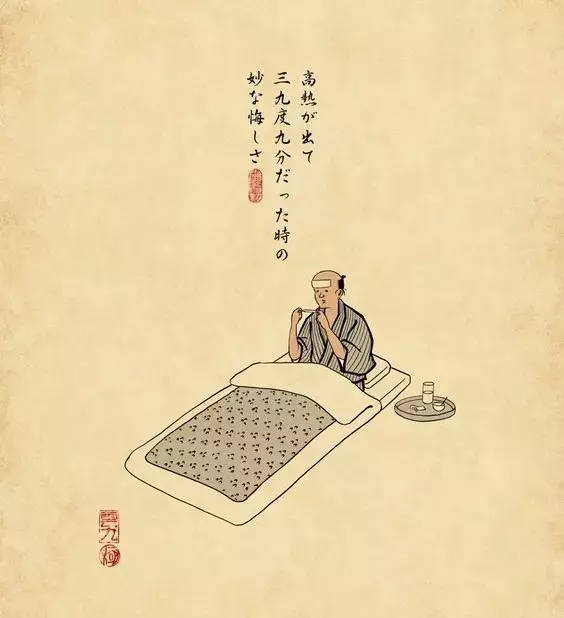 高熱が出て
三九度九分だった時の
妙な悔しさ